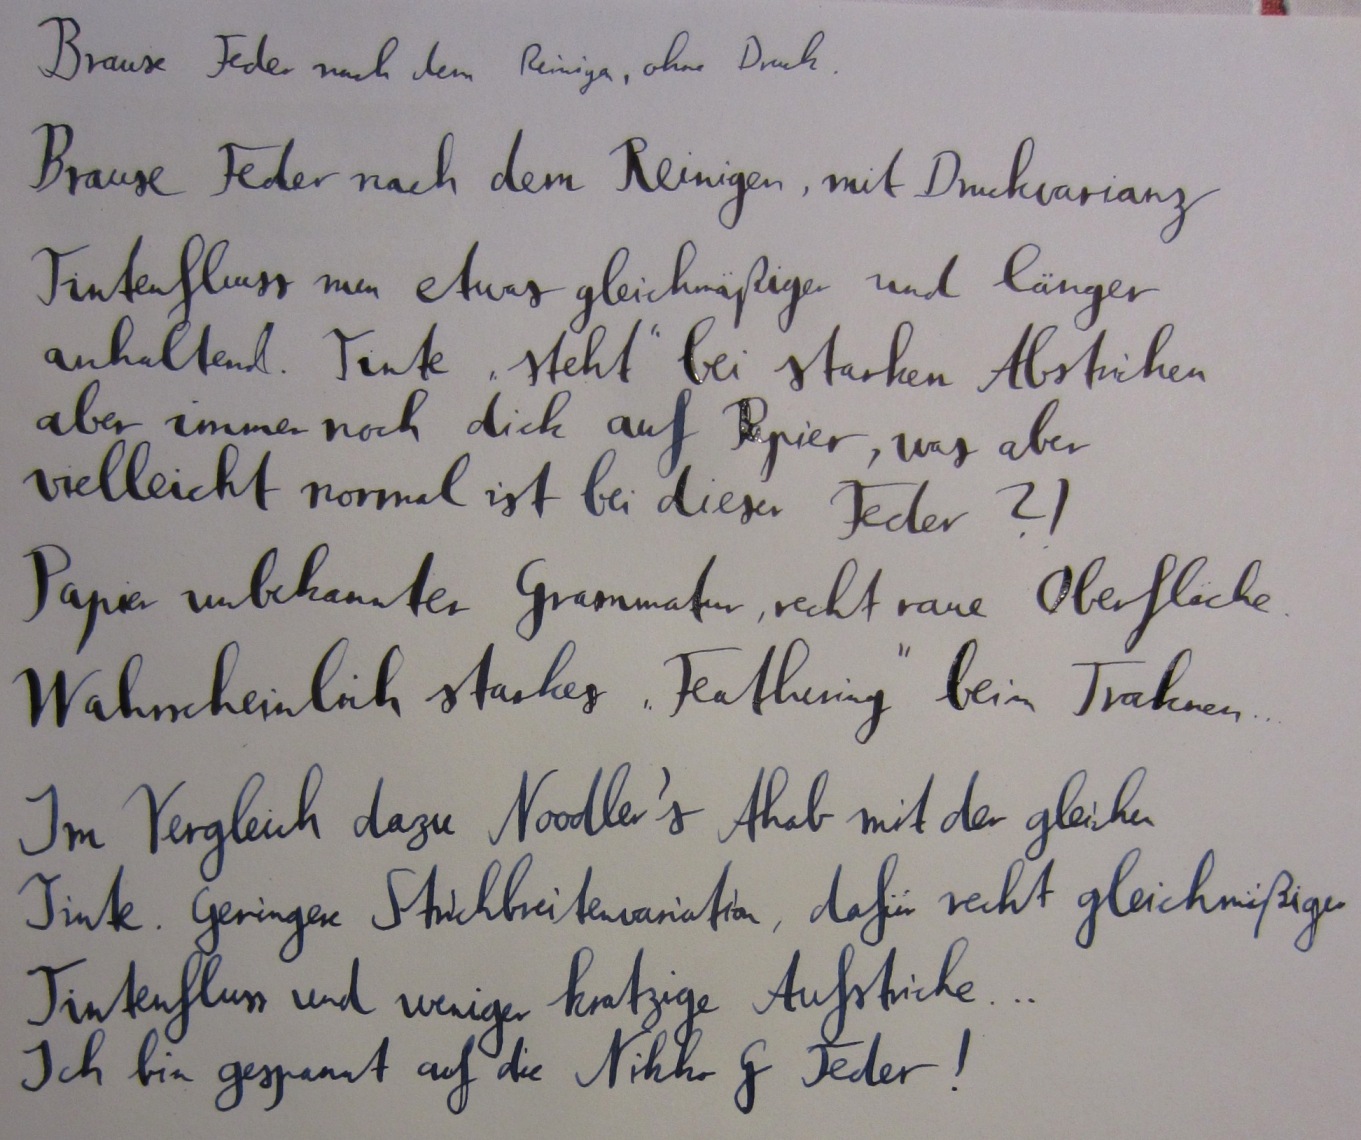 Brause Feder nach dem Reinigen, ohne Druck.
Brause Feder nach dem Reinigen, mit Druckvarianz
Tintenfluss nun etwas gleichmäßiger und länger
anhaltend. Tinte „steht“ bei starken Abstrichen
aber immer noch dick auf Papier, was aber
vielleicht normal ist bei dieser Feder ?!
Papier unbekannter Grammatur, recht raue Oberfläche.
Wahrscheinlich starkes „Feathering" beim Trocknen...
Im Vergleich dazu Noodler's Ahab mit der gleichen
Tinte. Geringere Strichbreitenvariation, dafür recht gleichmäßiger
Tintenfluss und weniger kratzige Aufstriche...
Ich bin gespannt auf die Nikko G Feder!